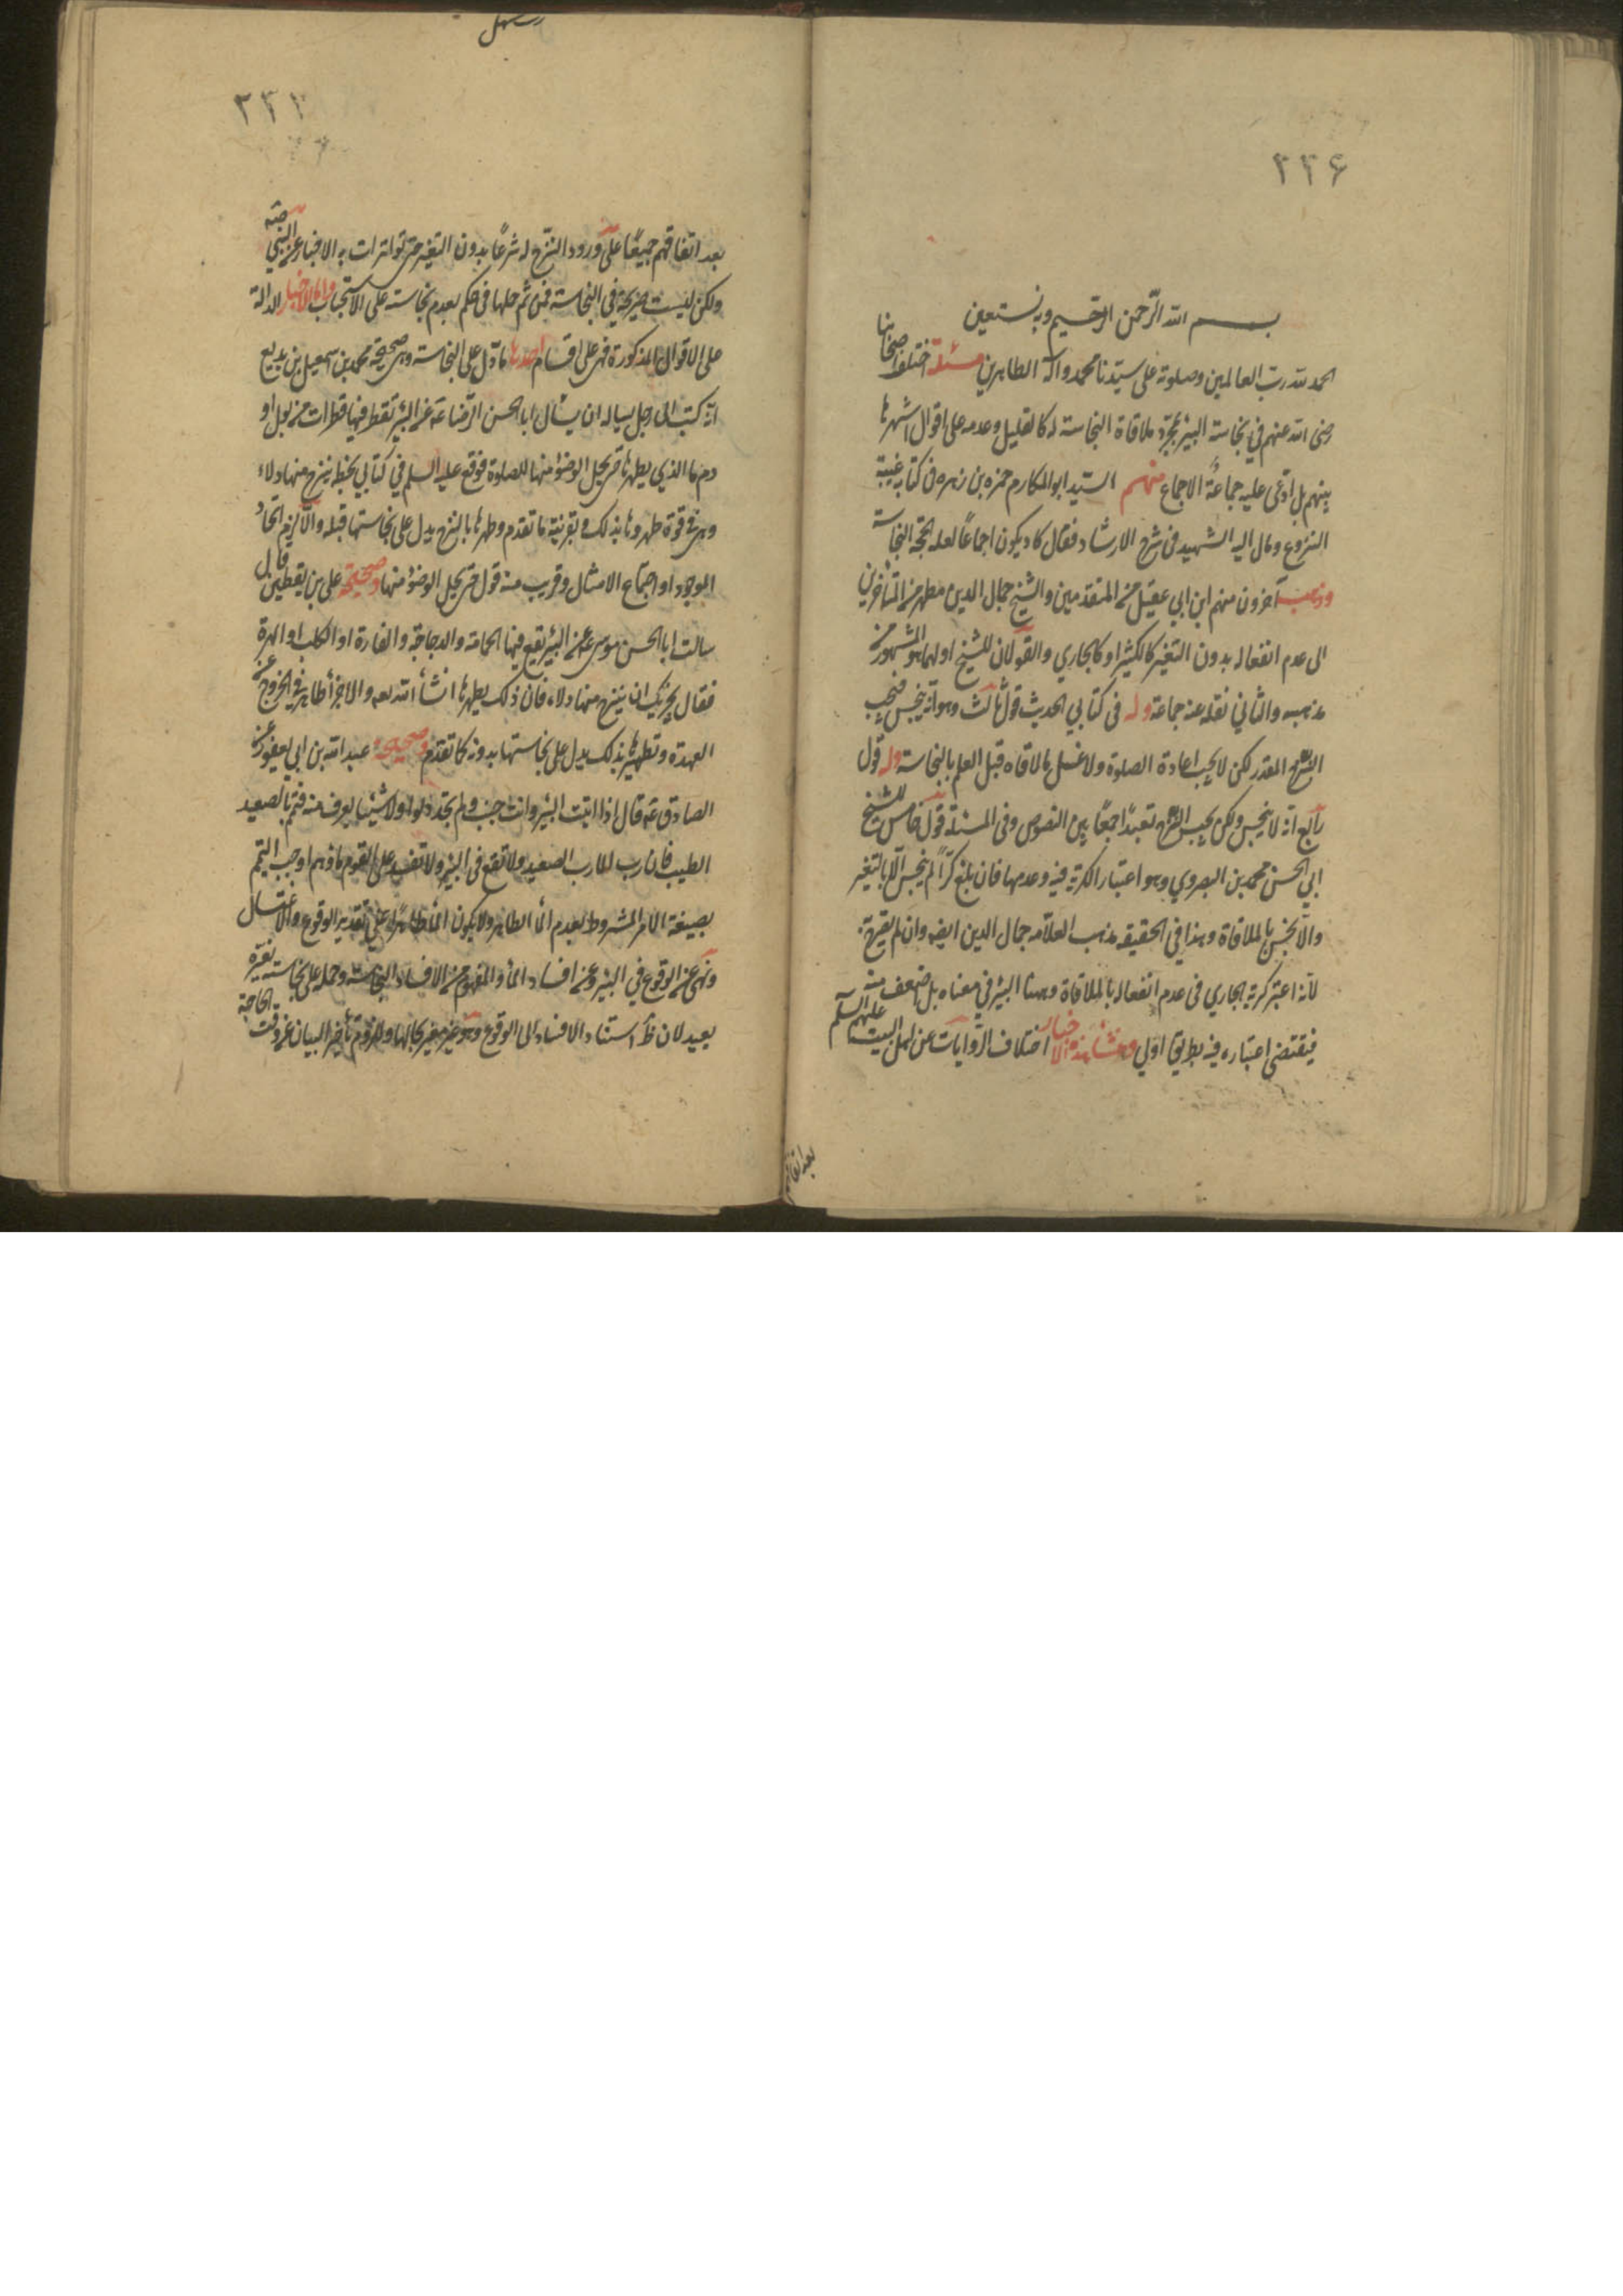 ٢٢۶
بسم الله الرّحمن الرّحيم وبه نستعين
الحمد لله ربّ العالمين وصلوته على سيّدنا محمد واله الطاهرين مسئلة اختلف اصحابنا
رضى الله عنهم في نجاسة البئر بمجرّد ملاقاة النجاسة له كالقليل وعدمه على اقوال اشهرها
بينهم بل ادّعى عليه جماعةٌ الاجماع منهم السيّد ابو المكارم حمزه بن زهره فى كتابه غنية
النزوع ومال اليه الشهيد فى شرح الارشاد فقال كاد يكون اجماعًا لعله الحجة النجاسة
وذهب آخرون منهم ابن ابي عقيل من المتقدمين والشيخ جمال الدين مطهر من المتأخرين
الى عدم انفعاله بدون التغير كالكثير او كالجاري والقولان للشيخ اولهما هو المشهور من
مذهبه والثاني نقله عنه جماعة وله فى كتابي الحديث قولٌ ثالث وهو انّه ينجس فيجب
النزح المقدر لكن لا يجب اعادة الصلوة ولا غسل ما لاقاه قبل العلم بالنجاسة وله قول
رابع انّه لا ينجس ولكن يجب النزح تعبدًا جمعًا بين النصوص وفى المسئلة قول خامس للشيخ
ابي الحسن محمد بن البصروي وهو اعتبار الكرّية فيه وعدمها فان بلغ كرًّا لم ينجس الّا بالتغير
والّا نجس بالملاقاة وهذا في الحقيقه مذهب العلّامه جمال الدين ايضه وان لم يصرح به
لانّه اعتبر كرية الجاري فى عدم انفعاله بالملاقاة وماء البئر في معناه بل اضعف منه
فيقتضى اعتباره فيه بطريق اولى ومنشأ هذه الاخبار اختلاف الرّوايات عن اهل البيت عليهم السلم
بعد اتفاقهم
٢٢٧
بعد اتفاقهم جميعًا على ورود النزح له شرعًا بدون التغير حتى تواترات به الاخبار عن النبي صته
ولكن ليست صريحة في النجاسة فمن ثم حملها فى حكم بعدم نجاسته على الاستحباب واما الاخبار الدالة
على الاقوال المذكورة فهى على اقسام احدها ما دل على النجاسة وهى صحيحة محمد بن سمعيل بن بديع
انّه كتب الى رجل يساله ان يسأل ابا الحسن الرّضا عه عن البئر تقطر فيها قطرات من بول او
دم ما الذي يطهرها حتى يحل الوضوء منها للصلوة فوقع عليه السلم في كتابي بخطه ينزح منها دلاء
وهى فى قوة طهروها بذلك وبقرينة ما تقدم وطهرها بالنزح يدل على نجاستها قبله والّا لزم اتحاد
الموجود او اجتماع الامثال وقريب منه قول حتى يحل الوضوء منها وصحيحة على بن يقطين قال
سالت ابا الحسن موسى عه عن البئر يقع فيها الحمامة والدجاجة والفارة او الكلب او الهرة
فقال يجزيك ان ينزح منها دلاء فان ذلك يطهرها انشأ الله تعه والاجزأ ظاهر في الخروج عن
العهدة وتطهيرها بذلك يدل على نجاستها بدونه كما تقدم وصحيحة عبد الله بن ابي يعفور عن
الصادق عه قال اذا اتيت البئر وانت جنب ولم تجد دلوا ولا شيئا يعرف منه فتيمّم بالصعيد
الطيب فان رب الماء رب الصعيد ولا تقع فى البئر ولا تفسد على القوم ماؤهم اوجب التيمم
بصيغة الامر المشروط بعدم الماء الطاهر ولا يكون الماء طاهرًا على تقدير الوقوع والاغتسال
ونهى عن الوقوع في البئر وعن افساد الماء والمفهوم من الافساد النجاسة وحمله على نجاسته بتغيره
بعيد لان ظ استناد الافساد الى الوقوع وهو غير مغير كالها وللزوم تأخير البيان عن وقت الحاجة